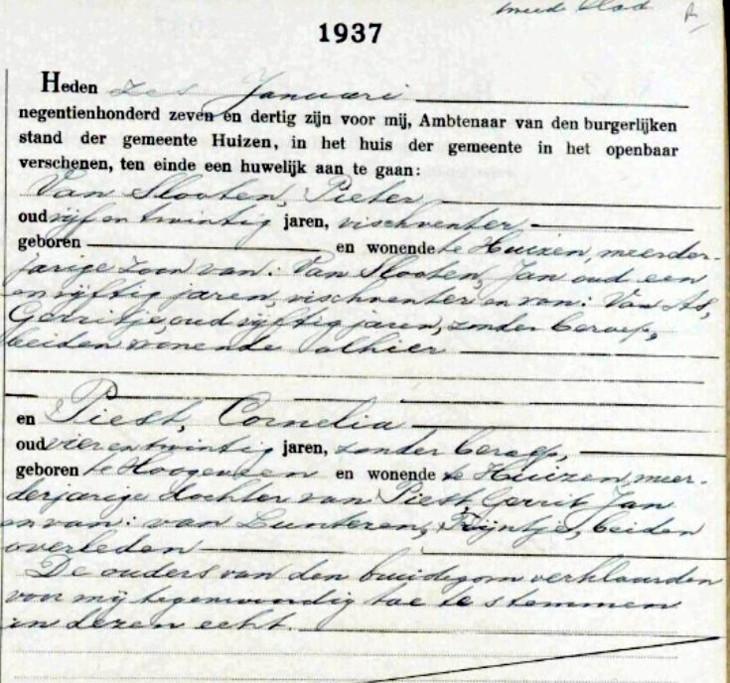 tweede blad
1937
Heden zes Januari
negentienhonderd zeven en dertig zijn voor mij, Ambtenaar van den burgerlijken
stand der gemeente Huizen, in het huis der gemeente in het openbaar
verschenen, ten einde een huwelijk aan te gaan:
Van Slooten, Pieter,
oud vijf en twintig jaren, vischventer,
geboren en wonende te Huizen, meerder-
jarige zoon van: Van Slooten, Jan oud een
en vijftig jaren, vischventer en van: Van As,
Gerritje, oud vijftig jaren, zonder beroep,
beiden wonende alhier
en Piest, Cornelia
oud vier en twintig jaren, zonder beroep,
geboren te Hoogeveen en wonende te Huizen, meer-
derjarige dochter van Piest, Gerrit Jan
en van: van Lunteren, Tijntje, beiden
overleden
De ouders van den bruidegom verklaarden
voor mij tegenwoordig toe te stemmen
in dezen echt.